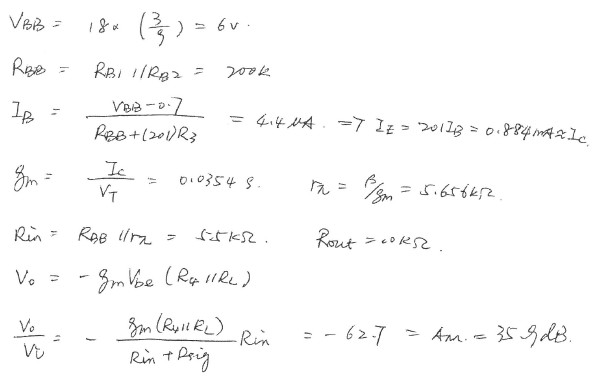 VBB = 18 × (3/9) = 6v.
RBB = RB1 // RB2 = 200k
IB = (VBB-0.7)/(RBB+(201)R3) = 4.4 uA. => IE = 201IB = 0.884mA ≈ Ic.
gm = Ic/VT = 0.0354 S. rπ = β/gm = 5.656kΩ.
Rin = RBB // rπ = 5.5kΩ. Rout = 10kΩ.
Vo = - gm Vbe (R4 // RL)
Vo/Vi = - gm(R4//RL)/(Rin + Rsig) Rin = -62.7 = Am. = 35.9dB.